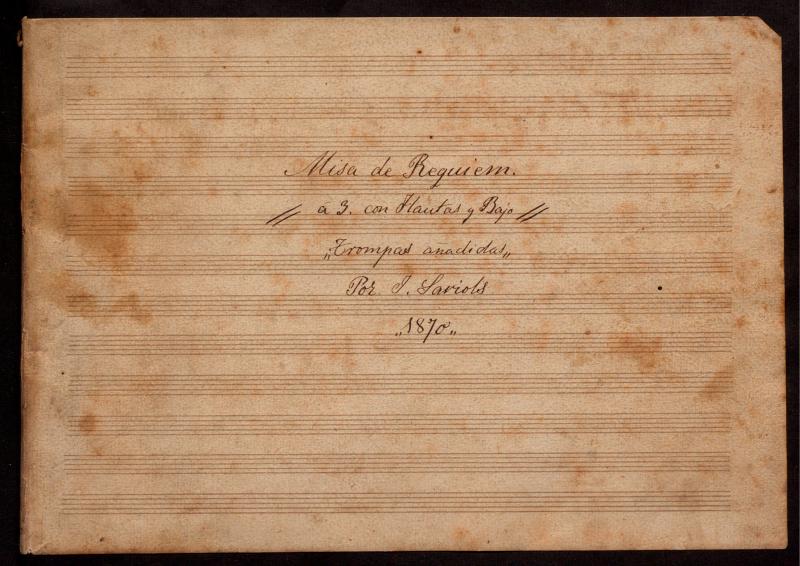 Misa de Requiem.
á 3. con Flautas y Bajo
„Trompas anadidas„
Por J. Sariols
„1870„